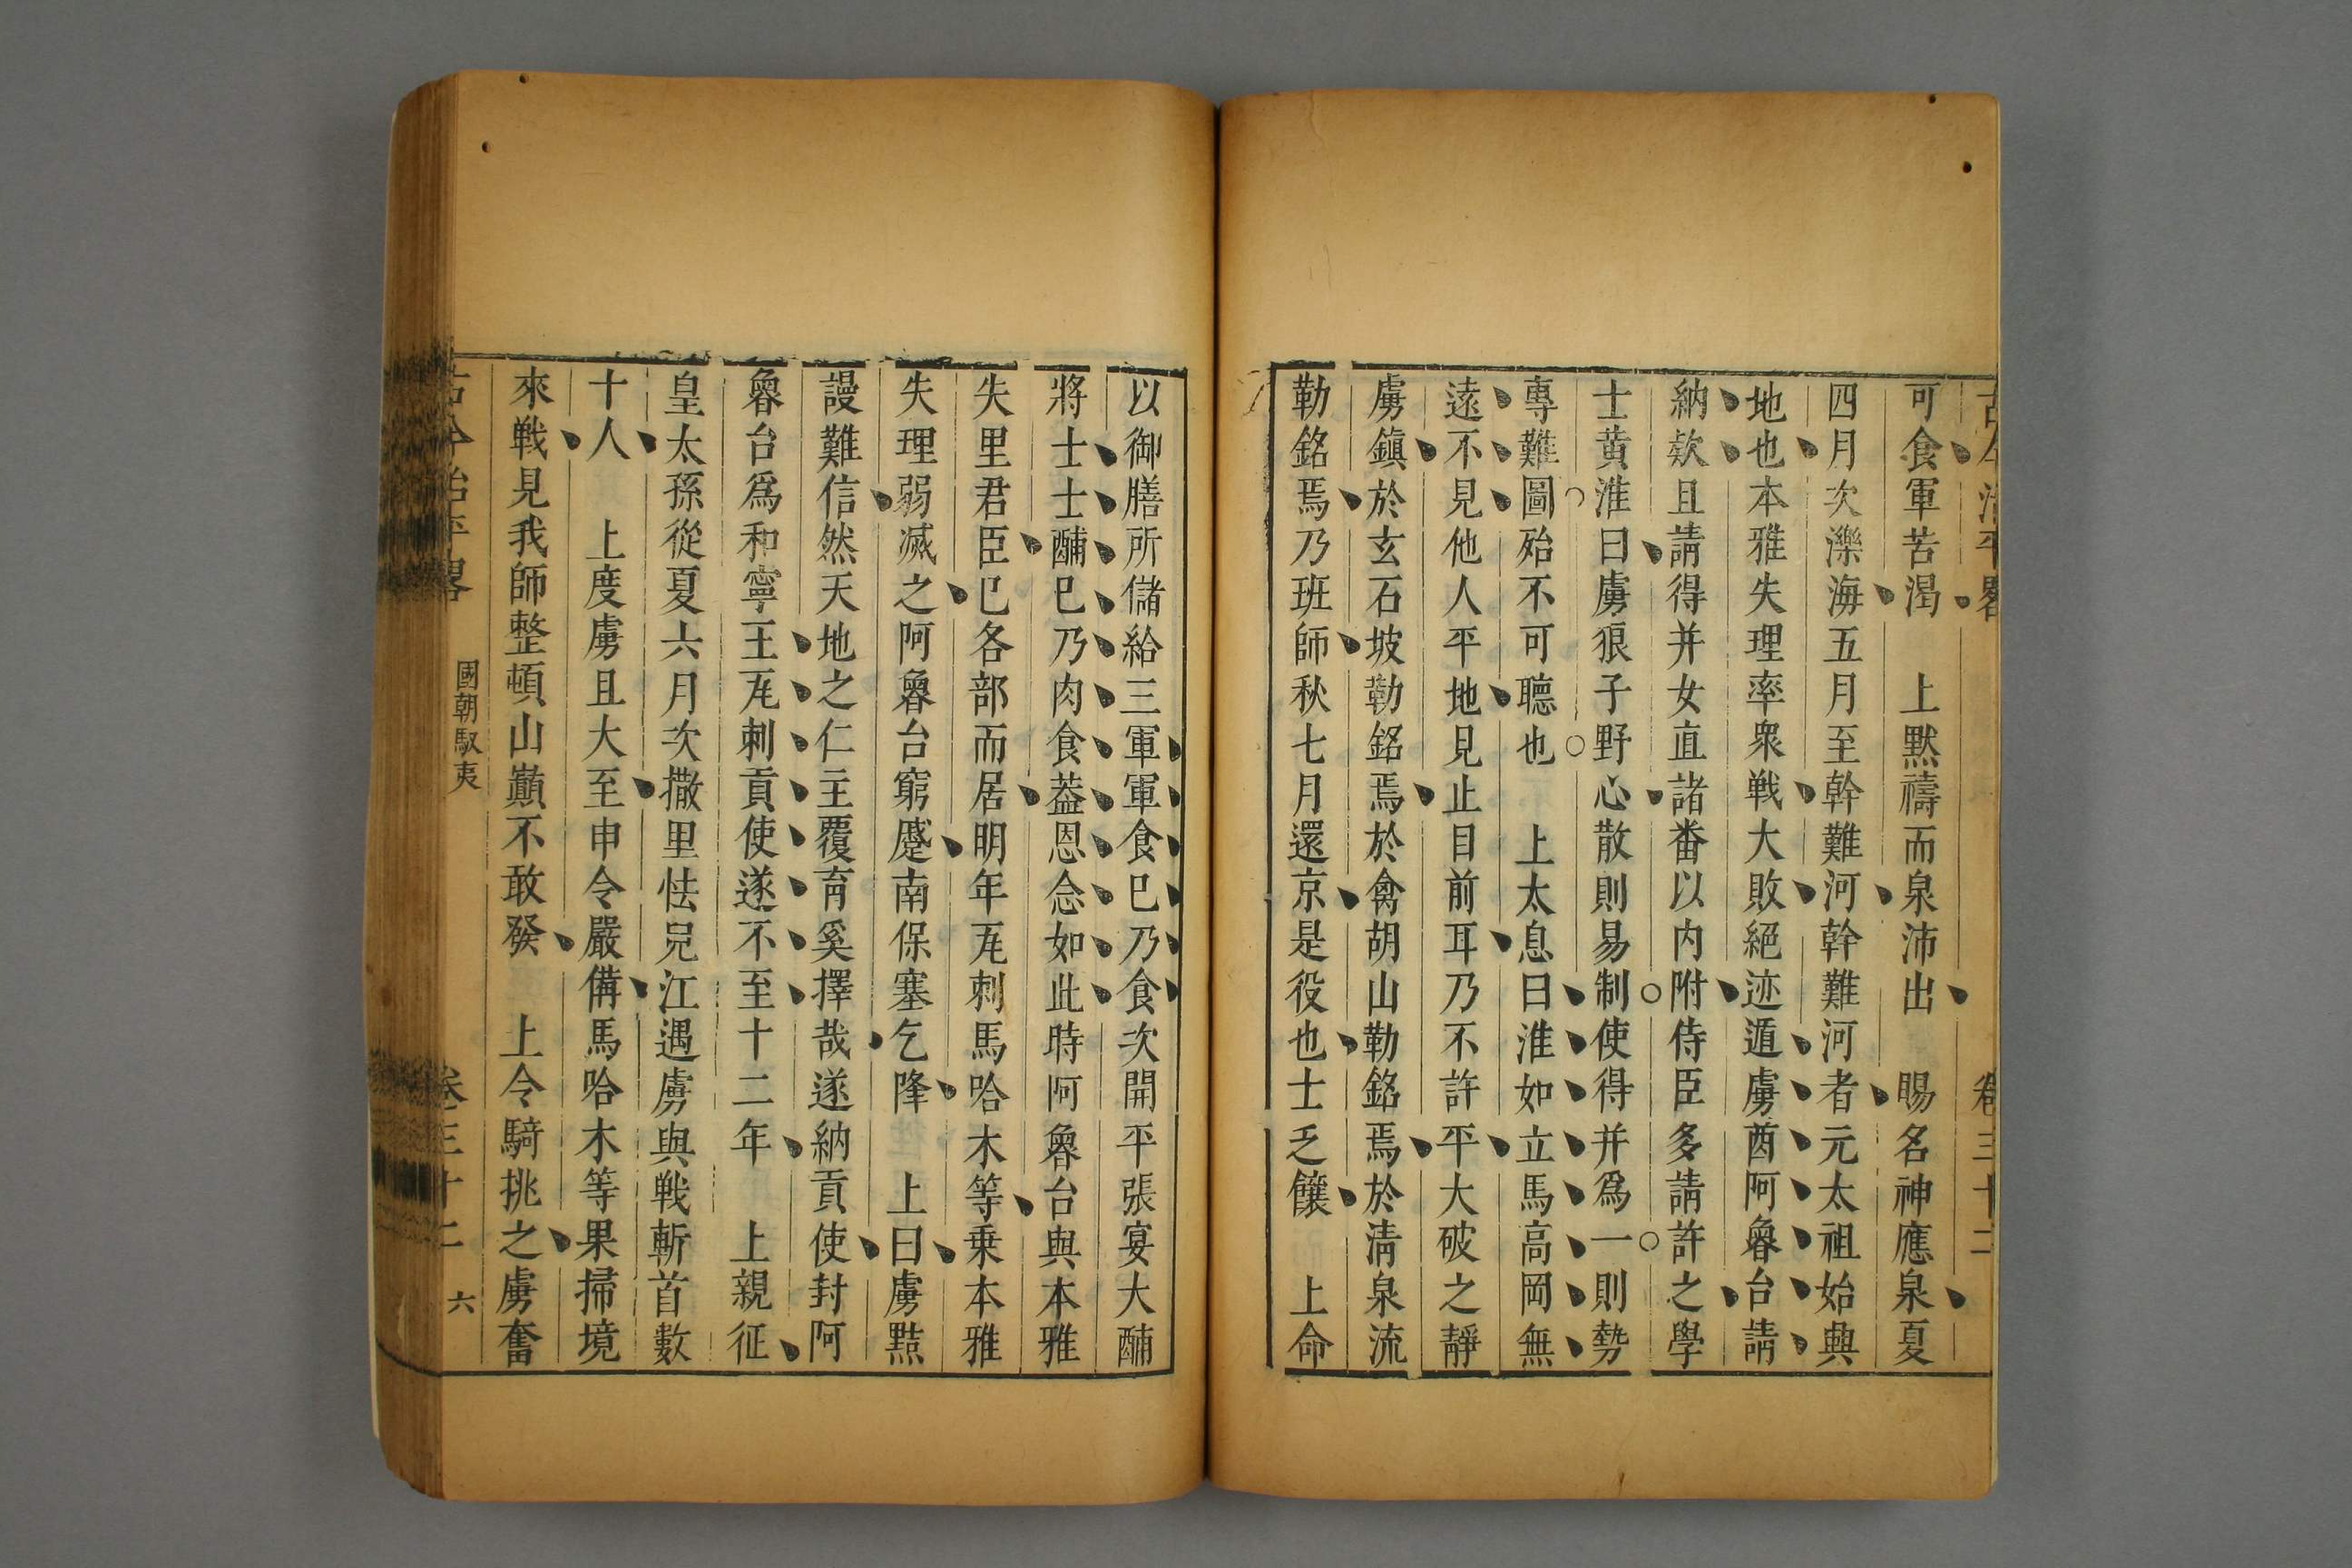 古今治平畧 卷三十二
可食軍苦渴 上默禱而泉沛出 賜名神應泉夏
四月次灤海五月至幹難河幹難河者元太祖始興
地也本雅失理率衆戰大敗絕迹遁虜酋阿魯台請
納欵且請得并女直諸番以内附侍臣多請許之學
士黄淮曰虜狼子野心散則易制使得并爲一則勢
專難圖殆不可聽也 上太息曰淮如立馬高岡無
遠不見他人平地見止目前耳乃不許平大破之靜
虜鎮於玄石坡勒銘焉於禽胡山勒銘焉於淸泉流
勒銘焉乃班師秋七月還京是役也士乏饟 上命
以御膳所儲給三軍軍食巳乃食次開平張宴大酺
將士士酺巳乃肉食葢恩念如此時阿魯台與本雅
失里君臣巳各部而居明年瓦剌馬哈木等乗本雅
失理弱滅之阿魯台窮蹙南保塞乞降 上曰虜黠
謾難信然天地之仁主覆育奚擇哉遂納貢使封阿
魯台爲和寧王瓦刺貢使遂不至十二年 上親征
皇太孫從夏六月次撒里怯兒江遇虜與戰斬首數
十人 上度虜且大至申令嚴備馬哈木等果掃境
來戰見我師整頓山巔不敢發 上令騎挑之虜奮
古今治平畧 國朝馭夷 卷三十二 六